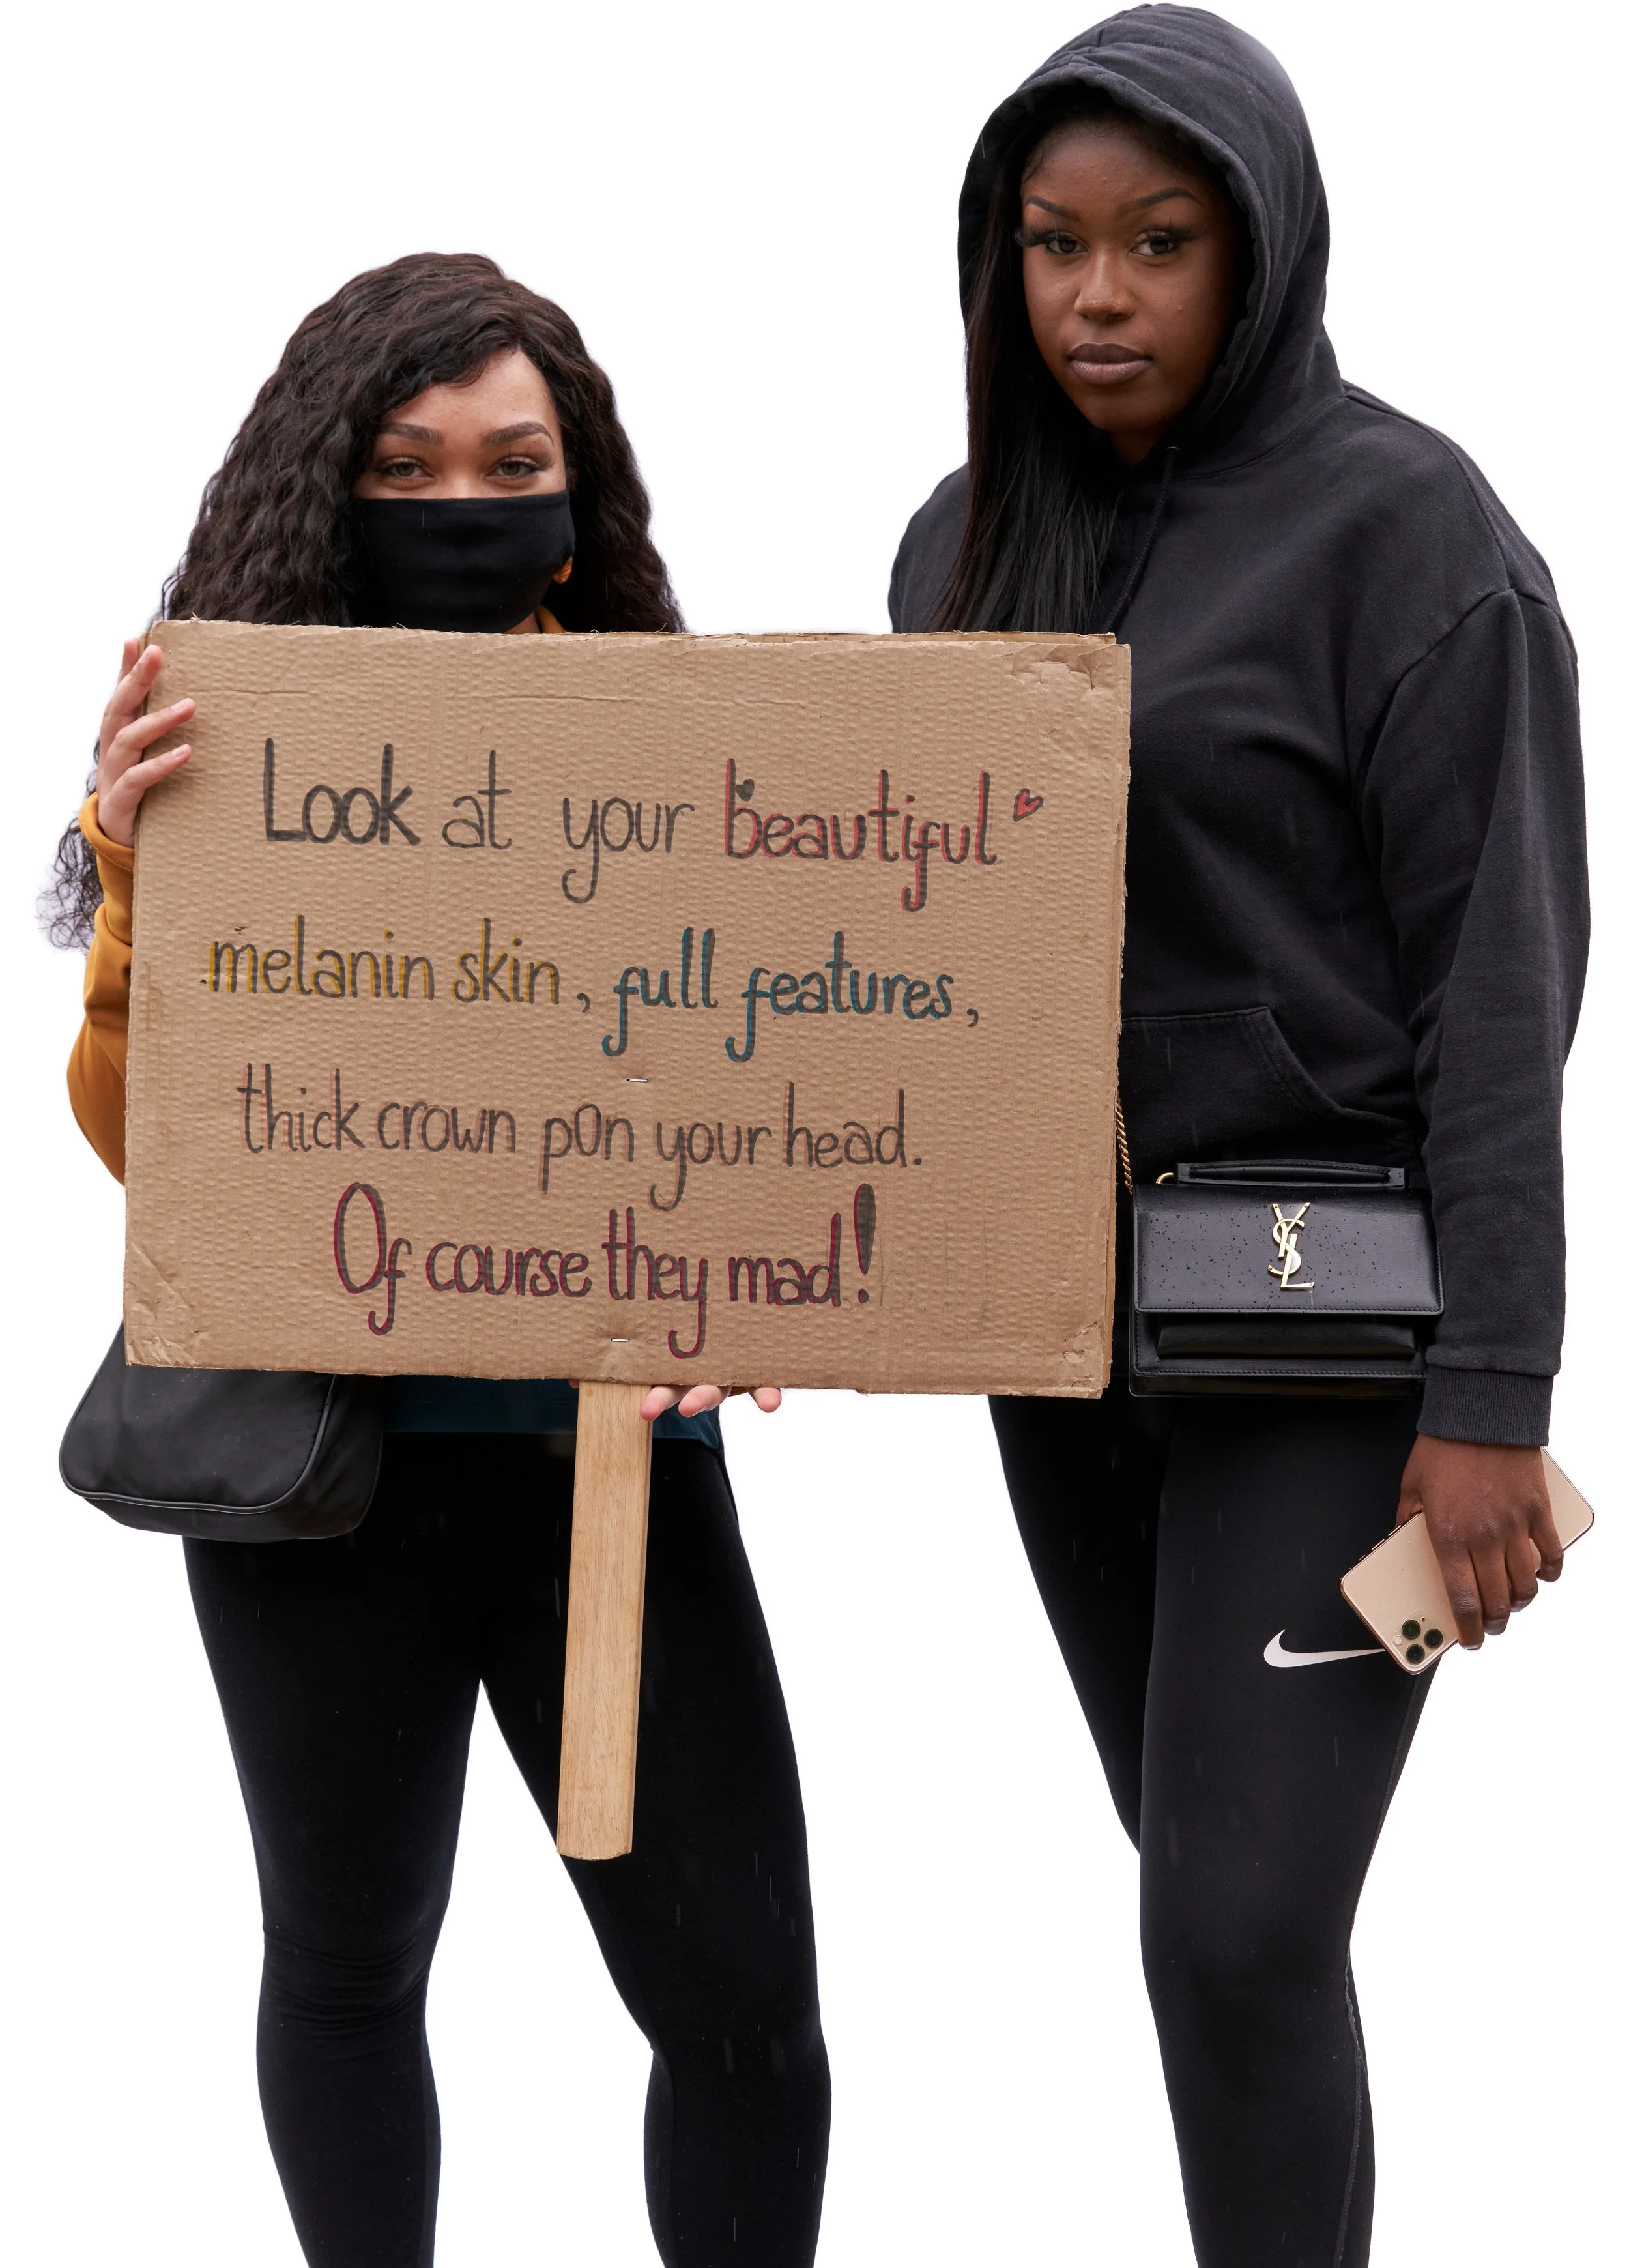 Look at your beautiful
melanin skin, full features,
thick crown pon your head.
Of course they mad!
YSL